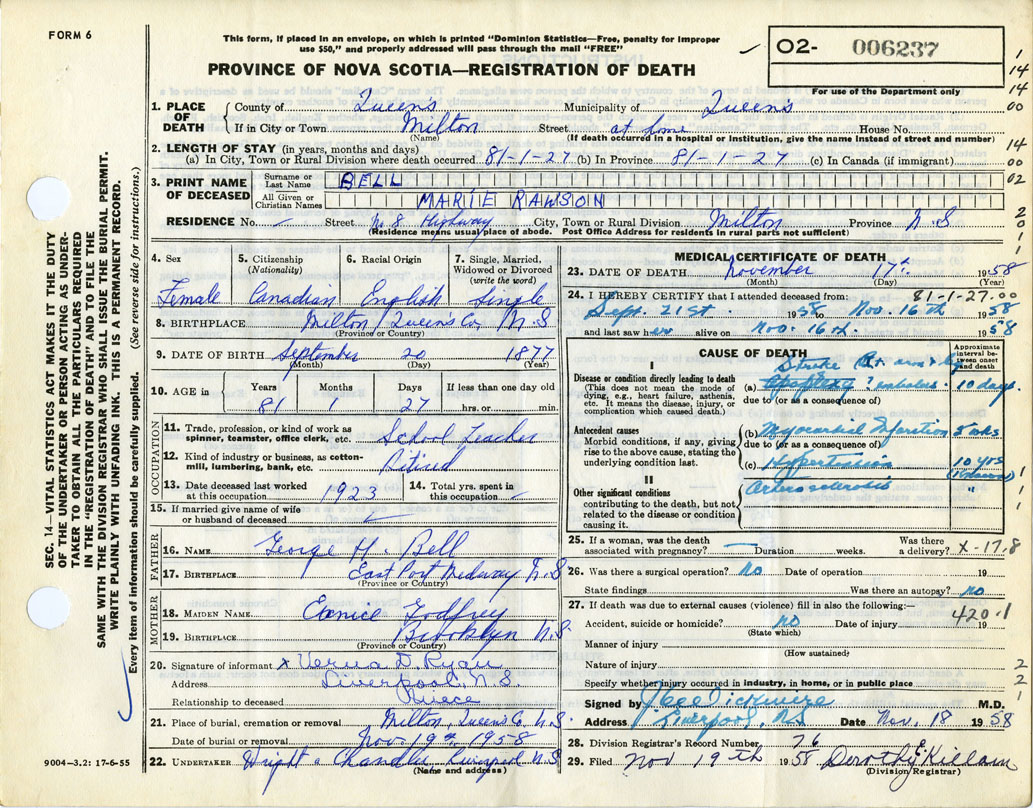 FORM 6
This form, if placed in an envelope, on which is printed "Dominion Statistics—Free, penalty for improper
use $50," and properly addressed will pass through the mail "FREE"
PROVINCE OF NOVA SCOTIA—REGISTRATION OF DEATH
O2- 006237
For use of the Department only
1. PLACE OF DEATH County of Queen's Municipality of Queen's
If in City or Town Milton Street at home House No.
(Name) (If death occurred in a hospital or institution, give the name instead of street and number)
2. LENGTH OF STAY (in years, months and days)
(a) In City, Town or Rural Division where death occurred 81-1-27 (b) In Province 81-1-27 (c) In Canada (if immigrant)
3. PRINT NAME OF DECEASED Surname or Last Name BELL
All Given or Christian Names MARIE RAWSON
RESIDENCE No. – Street No 8 Highway City, Town or Rural Division Milton Province N.S
(Residence means usual place of abode. Post Office Address for residents in rural parts not sufficient)
4. Sex 5. Citizenship (Nationality) 6. Racial Origin 7. Single, Married, Widowed or Divorced (write the word)
Female Canadian English Single
8. BIRTHPLACE Milton Queen's Co, N.S
(Province or Country)
9. DATE OF BIRTH September 20 1877
(Month) (Day) (Year)
10. AGE in Years Months Days If less than one day old
81 1 27 hrs. or min.
OCCUPATION
11. Trade, profession, or kind of work as spinner, teamster, office clerk, etc. School Teacher
12. Kind of industry or business, as cotton-mill, lumbering, bank, etc. Retired
13. Date deceased last worked at this occupation 1923 14. Total yrs. spent in this occupation
15. If married give name of wife or husband of deceased
FATHER
16. NAME George H. Bell
17. BIRTHPLACE East Port Medway N.S
(Province or Country)
MOTHER
18. MAIDEN NAME Eunice Godfrey
19. BIRTHPLACE Brooklyn N.S
(Province or Country)
20. Signature of informant x Verna D. Ryan
Address Liverpool, N.S.
Relationship to deceased Niece
21. Place of burial, cremation or removal Milton, Queen's Co. N.S.
Date of burial or removal Nov. 19th, 1958
22. UNDERTAKER Wright & Chandler Liverpool N.S
(Name and address)
MEDICAL CERTIFICATE OF DEATH
23. DATE OF DEATH November 17th 1958
(Month) (Day) (Year)
81-1-27.00
24. I HEREBY CERTIFY that I attended deceased from:
Sept. 21st 1958 to Nov. 16th 1958
and last saw her alive on Nov. 16th. 1958
CAUSE OF DEATH
Approximate interval between onset and death
I
Disease or condition directly leading to death
(This does not mean the mode of dying, e.g., heart failure, asthenia, etc. It means the disease, injury, or complication which caused death.)
Stroke
(a) ? embolus 10 days
due to (or as a consequence of)
Antecedent causes
Morbid conditions, if any, giving rise to the above cause, stating the underlying condition last.
(b) Myocardial Infarction
due to (or as a consequence of)
(c) Hypertension 10 yrs
II
Other significant conditions
contributing to the death, but not related to the disease or condition causing it.
Arteriosclerosis "
25. If a woman, was the death associated with pregnancy? – Duration weeks. Was there a delivery? X-17.8
26. Was there a surgical operation? No Date of operation 19
State findings Was there an autopsy? No
27. If death was due to external causes (violence) fill in also the following:—
420.1
Accident, suicide or homicide? No Date of injury 19
(State which)
Manner of injury
(How sustained)
Nature of injury
Specify whether injury occurred in industry, in home, or in public place
Signed by M.D.
Address Liverpool, NS Date Nov. 18 1958
28. Division Registrar's Record Number 76
29. Filed Nov 19th 1958 Dorothy E Killam
(Division Registrar)
SEC. 14—VITAL STATISTICS ACT MAKES IT THE DUTY
OF THE UNDERTAKER OR PERSON ACTING AS UNDER-
TAKER TO OBTAIN ALL THE PARTICULARS REQUIRED
IN THE "REGISTRATION OF DEATH" AND TO FILE THE
SAME WITH THE DIVISION REGISTRAR WHO SHALL ISSUE THE BURIAL PERMIT.
WRITE PLAINLY WITH UNFADING INK. THIS IS A PERMANENT RECORD.
Every item of information should be carefully supplied. (See reverse side for instructions.)
9004—3.2: 17-6-55
1
14
14
00
14
00
02
2
0
1
1
1
1
2
2
1